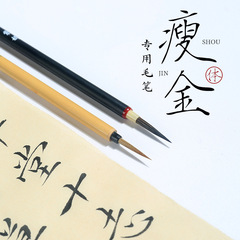 瘦金
SHOU
JIN
体
专用毛笔
堂十